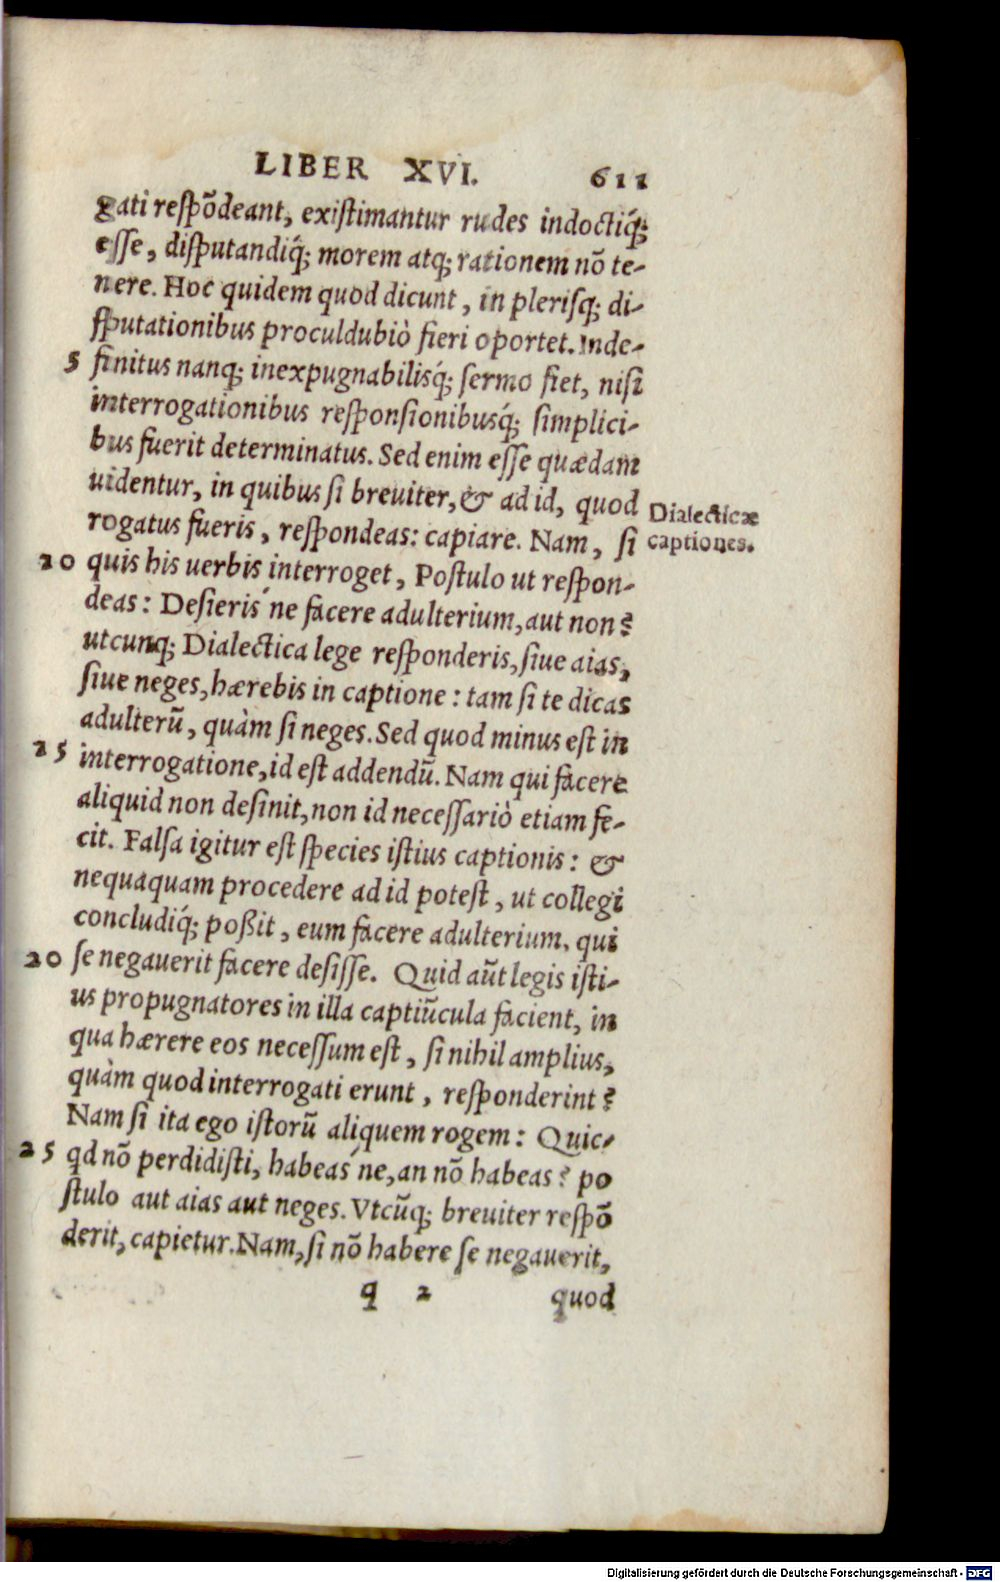 LIBER XVI. 611
gati respõdeant, existimantur rudes indoctiq́;
esse, disputandiq́; morem atq; rationem nõ te-
nere. Hoc quidem quod dicunt, in plerisq; di-
sputationibus proculdubiò fieri oportet. Inde-
5 finitus nanq; inexpugnabilisq́; sermo fiet, nisi
interrogationibus responsionibusq́; simplici-
bus fuerit determinatus. Sed enim esse quædam
uidentur, in quibus si breuiter, & ad id, quod
rogatus fueris, respondeas: capiare. Nam, si
Dialecticæ
captiones.
10 quis his uerbis interroget, Postulo ut respon-
deas: Desieris´ne facere adulterium, aut non?
utcunq; Dialectica lege responderis, siue aias,
siue neges, hærebis in captione: tam si te dicas
adulterũ, quàm si neges. Sed quod minus est in
15 interrogatione, id est addendũ. Nam qui facere
aliquid non desinit, non id necessariò etiam fe-
cit. Falsa igitur est species istius captionis: &
nequaquam procedere ad id potest, ut collegi
concludiq́; poßit, eum facere adulterium, qui
20 se negauerit facere desisse. Quid aũt legis isti-
us propugnatores in illa captiũcula facient, in
qua hærere eos necessum est, si nihil amplius,
quàm quod interrogati erunt, responderint?
Nam si ita ego istorũ aliquem rogem: Quic-
25 qd nõ perdidisti, habeas´ne, an nõ habeas? po
stulo aut aias aut neges. Vtcũq; breuiter respõ
derit, capietur. Nam, si nõ habere se negauerit,
q 2 quod
Digitalisierung gefördert durch die Deutsche Forschungsgemeinschaft - DFG